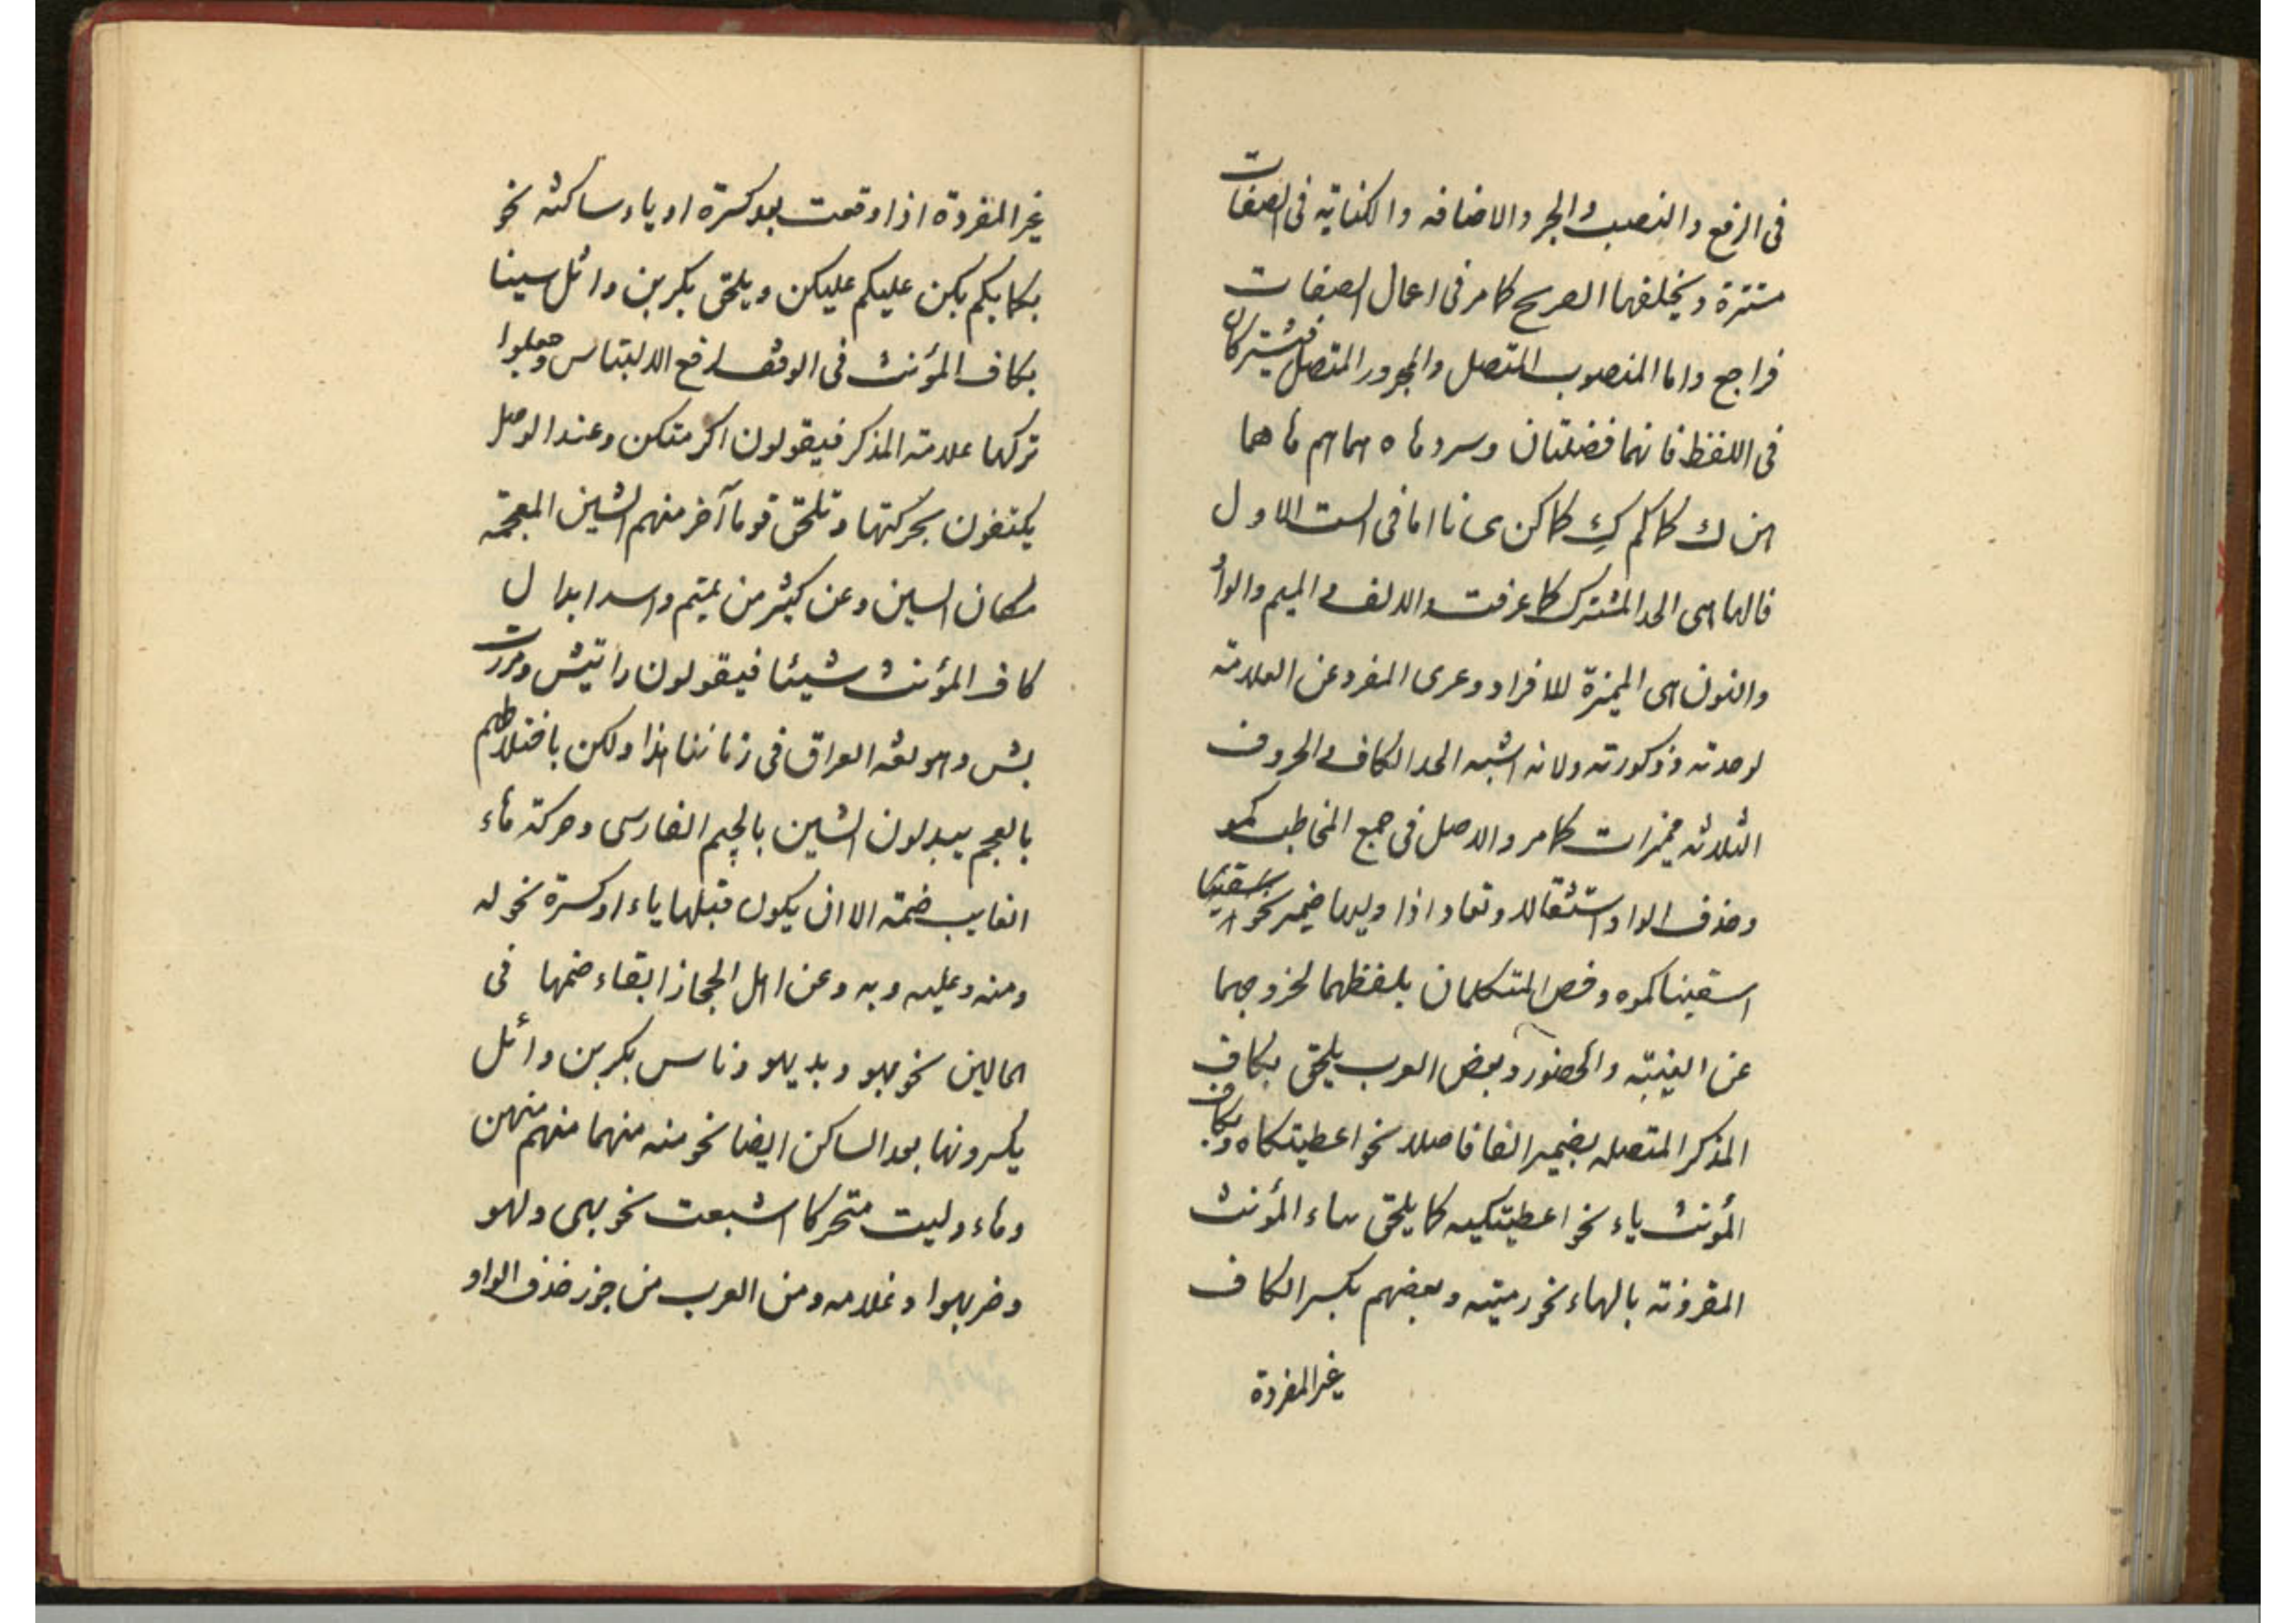 فى الرفع والنصب والجر والاضافه والكنايه فى الصفات
مستترة ويخلفها الصريح كما مر فى اعمال الصفات
فراجع واما المنصوب المتصل والمجرور المتصل فيشتركان
فى اللفظ فانهما فضلتان وسرد ها ه هما هم ها هما
هن ك كما كم كِ كما كن ى نا اما فى الست الاول
فالهاء هى الحد المشترك كما عرفت والالف والميم والواو
والنون هى المميزة للافراد وعرى المفرد عن العلامة
لوحدته وذكورته ولانه اشبه الحد الكاف والحروف
الثلاثه مميزات كما مر والاصل فى جمع المخاطب كمو
وحذف الواو استثقالا وتعاد اذا وليها ضمير نحو اسقيناكموه
اسقيناكموه وخص المتكلمان بلفظهما لخروجهما
عن الغيبة والحضور وبعض العرب يلحق بكاف
المذكر المتصله بضمير الفا فاصلا نحو اعطيتكاه وبكاف
المؤنث ياء نحو اعطيتكيه كما يلحق بتاء المؤنث
المقرونة بالهاء نحو رميتيه وبعضهم بكسر الكاف
غير المفردة
غير المفردة اذا وقعت بعد كسرة او ياء ساكنه نحو
بكما بكم بكن عليكم عليكن ويلحق بكر بن وائل سينا
بكاف المؤنث فى الوقف لرفع الالتباس وجعلوا
تركها علامة المذكر فيقولون اكرمتكس وعند الوصل
يكتفون بحركتها وتلحق قوما آخر منهم الشين المعجمة
مكان السين وعن كثير من تميم واسد ابدال
كاف المؤنث شينا فيقولون رايتش ومررت
بش وهو لغة العراق فى زماننا هذا ولكن باختلاطهم
بالعجم يبدلون الشين بالچيم الفارسى وحركة هاء
الغايب ضمة الا ان يكون قبلها ياء او كسرة نحو له
ومنه وعليه وبه وعن اهل الحجاز ابقاء ضمها فى
الحالين نحو بهو ولديهو وناس بكر بن وائل
يكسرونها بعد الساكن ايضا نحو منه منهما منهم منهن
وهاء وليت متحركا اشبعت نحو بهى ولهو
وضربهوا وغلامه ومن العرب من جوز حذف الواو